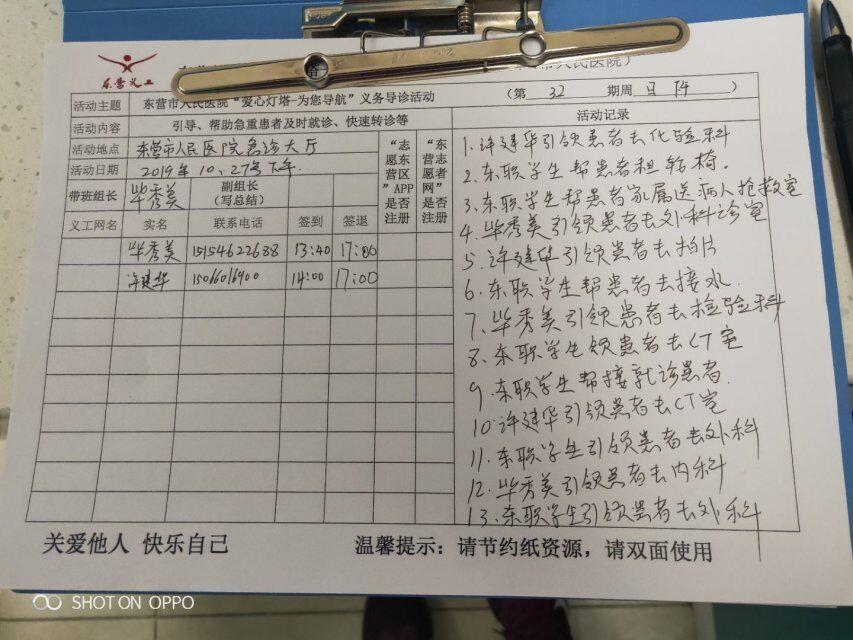 东营义工
市人民医院）
活动主题 东营市人民医院“爱心灯塔-为您导航”义务导诊活动 （第 32 期周 日 ）
活动内容 引导、帮助急重患者及时就诊、快速转诊等
活动地点 东营市人民医院急诊大厅
活动日期 2019年10.27号下午.
带班组长 毕秀美 副组长（写总结）
义工网名 实名 联系电话 签到 签退 “志愿东营区”APP是否注册 “东营志愿者网”是否注册
毕秀美 15154622688 13:40 17:00
许建华 15066016900 14:00 17:00
活动记录
1.许建华引领患者去化验科
2.东职学生帮患者租轮椅.
3.东职学生帮患者家属送病人抢救室
4.毕秀美引领患者去外科诊室
5.许建华引领患者去拍片
6.东职学生帮患者去接水.
7.毕秀美引领患者去检验科
8.东职学生领患者去CT室
9.东职学生帮接就诊患者.
10.许建华引领患者去CT室
11.东职学生引领患者去外科
12.毕秀美引领患者去内科
13.东职学生引领患者去外科
关爱他人 快乐自己 温馨提示：请节约纸资源，请双面使用
SHOT ON OPPO